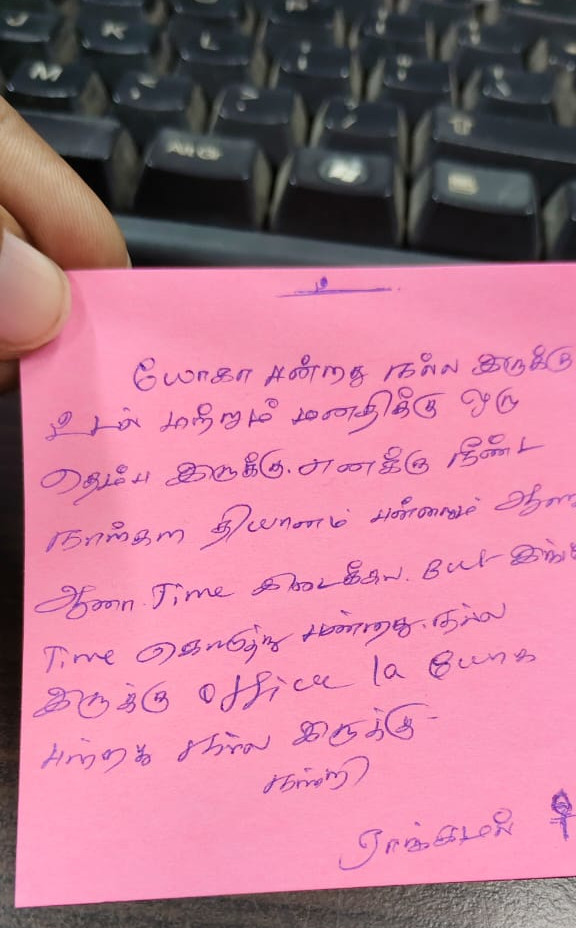 உ
யோகா பன்றது நல்ல இருக்கு
உடல் மற்றும் மனதிக்கு ஒரு
தெம்ப இருக்கு. எனக்கு நீண்ட
நாள்கள தியானம் பன்னனும் ஆசை
ஆனா Time கிடைக்கல. But இங்க
Time கொடுத்து பன்றது. நல்ல
இருக்கு Office la யோக
பன்றது நல்ல இருக்கு-
நன்றி